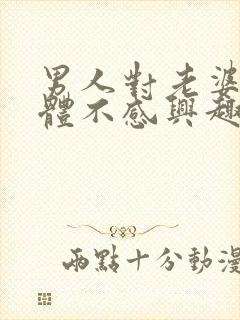 男人對老婆
體不感興趣
兩點十分動漫